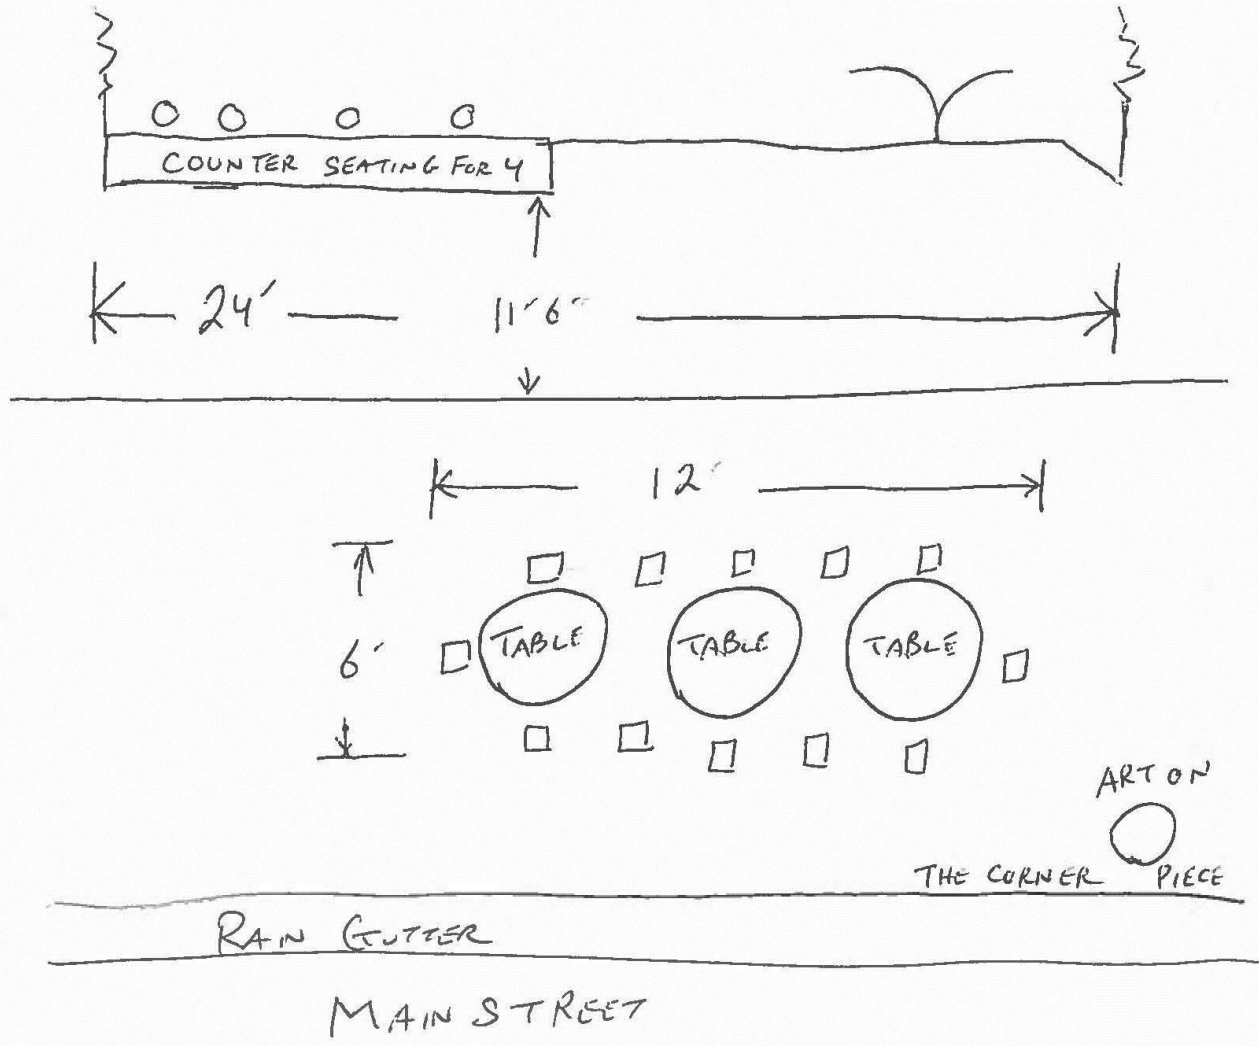 COUNTER SEATING FOR 4
24'
11' 6"
12'
6'
TABLE
TABLE
TABLE
ART ON
THE CORNER PIECE
RAIN GUTTER
MAIN STREET